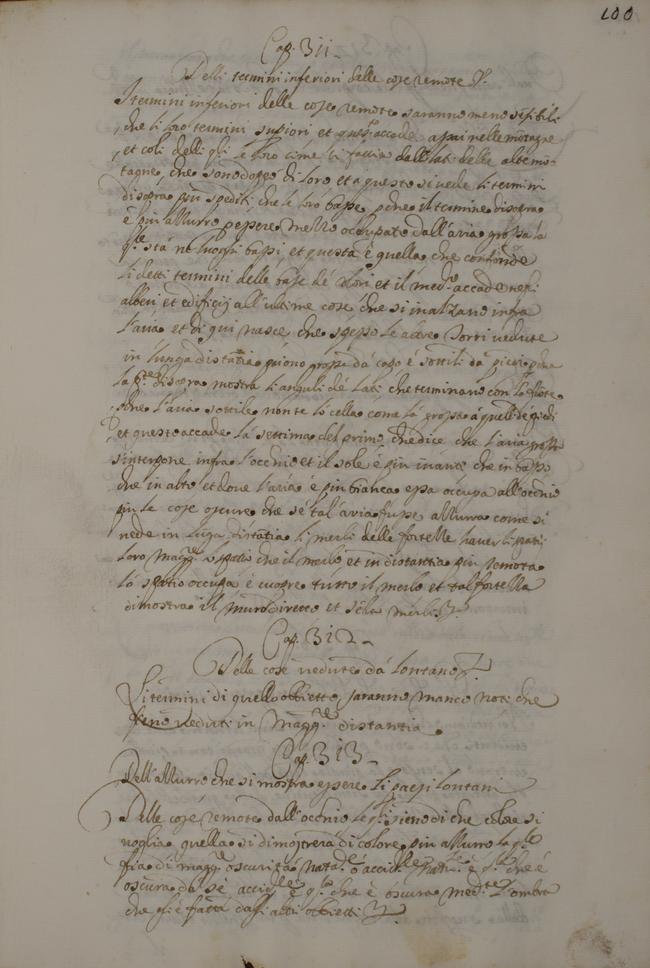 100
Cap. 311
Delli termini inferiori delle cose remote
I termini inferiori delle cose remote saranno meno sensibili
che li loro termini superiori et questo accade assai nelle montagne
et coli delli q.li le loro cime si faccia dalli lati delle altre mo=
tagne, che sono doppo di loro et a questo si vede li termini
di sopra più spediti che le loro base, perche il termine di sopra
è più azzurro per essere meno occupato dall'aria grossa la
q.le stà ne luoghi bassi, et questa è quella, che confonde
li detti termini delle base de colori et il med.o accade negli
alberi et edificij all'ultime cose che si inalzano infra
l'aria et di qui nasce che spesso le altre Torri vedute
in lunga distantia paiono grosse da capo è sottili da piedi, p che
la p.te di sopra mostra li anguli de lati che terminano con la fronte
p che l'aria sottile non te li cella come la grossa a quelli de piedi
et questo accade la settima del primo, che dice che l'aria grossa
s'interpone infra l'occhio et il sole è più in basso
che in alto et dove l'aria è più bianca essa occupa all'occhio
più le cose oscure, che se tal'aria fusse azzurra come si
vede in luga distantia li merli delle fortezze haver li spatij
loro magg.re spatio che il merlo et in distantia più remota
lo spatio occupa e cuopre tutto il merlo et tal fortezza
dimostra il muro diretto et senza merli.
Cap. 312
Delle cose vedute da lontano
Li termini di quello obbietto saranno manco noti che
fieno veduti in magg.re distantia
Cap. 313
Dell'azzurro che si mostra essere li paesi lontani
Delle cose remote dall'occhio le q.li sieno di che colore si
voglia quella si dimostrera di colore più azzurro la q.le
fia di magg.re oscurità nat.le o accid.le nat.le è q.la che è
oscura da se accid.le è q.la che è oscura med.te l'ombra
che gli è fatta dagli altri obbietti